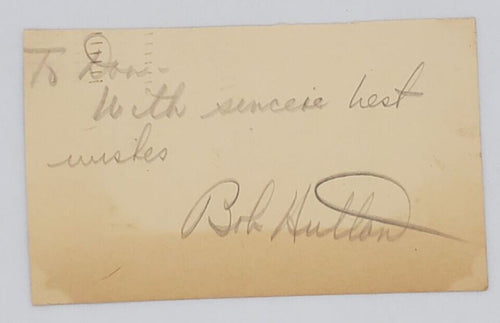 To
With sincere best
wishes
Bob Hutton